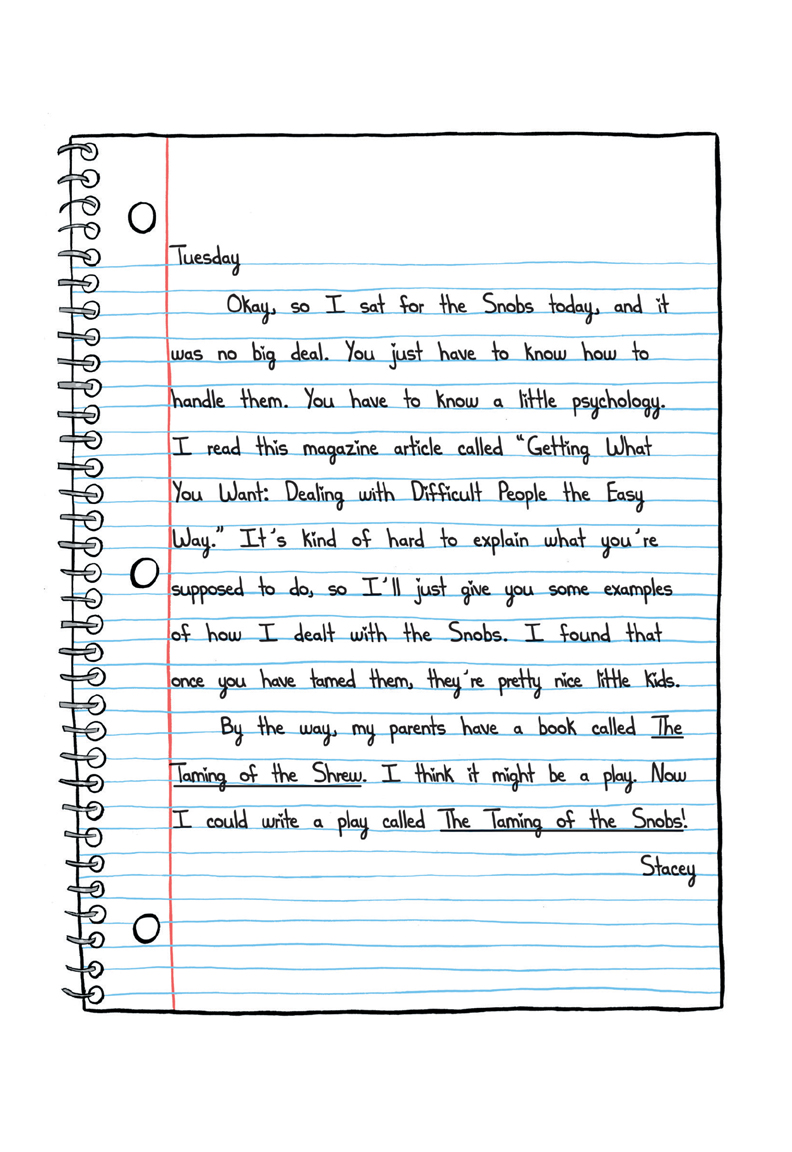 Tuesday
Okay, so I sat for the Snobs today, and it
was no big deal. You just have to know how to
handle them. You have to know a little psychology.
I read this magazine article called "Getting What
You Want: Dealing with Difficult People the Easy
Way." It's kind of hard to explain what you're
supposed to do, so I'll just give you some examples
of how I dealt with the Snobs. I found that
once you have tamed them, they're pretty nice little kids.
By the way, my parents have a book called The
Taming of the Shrew. I think it might be a play. Now
I could write a play called The Taming of the Snobs!
Stacey